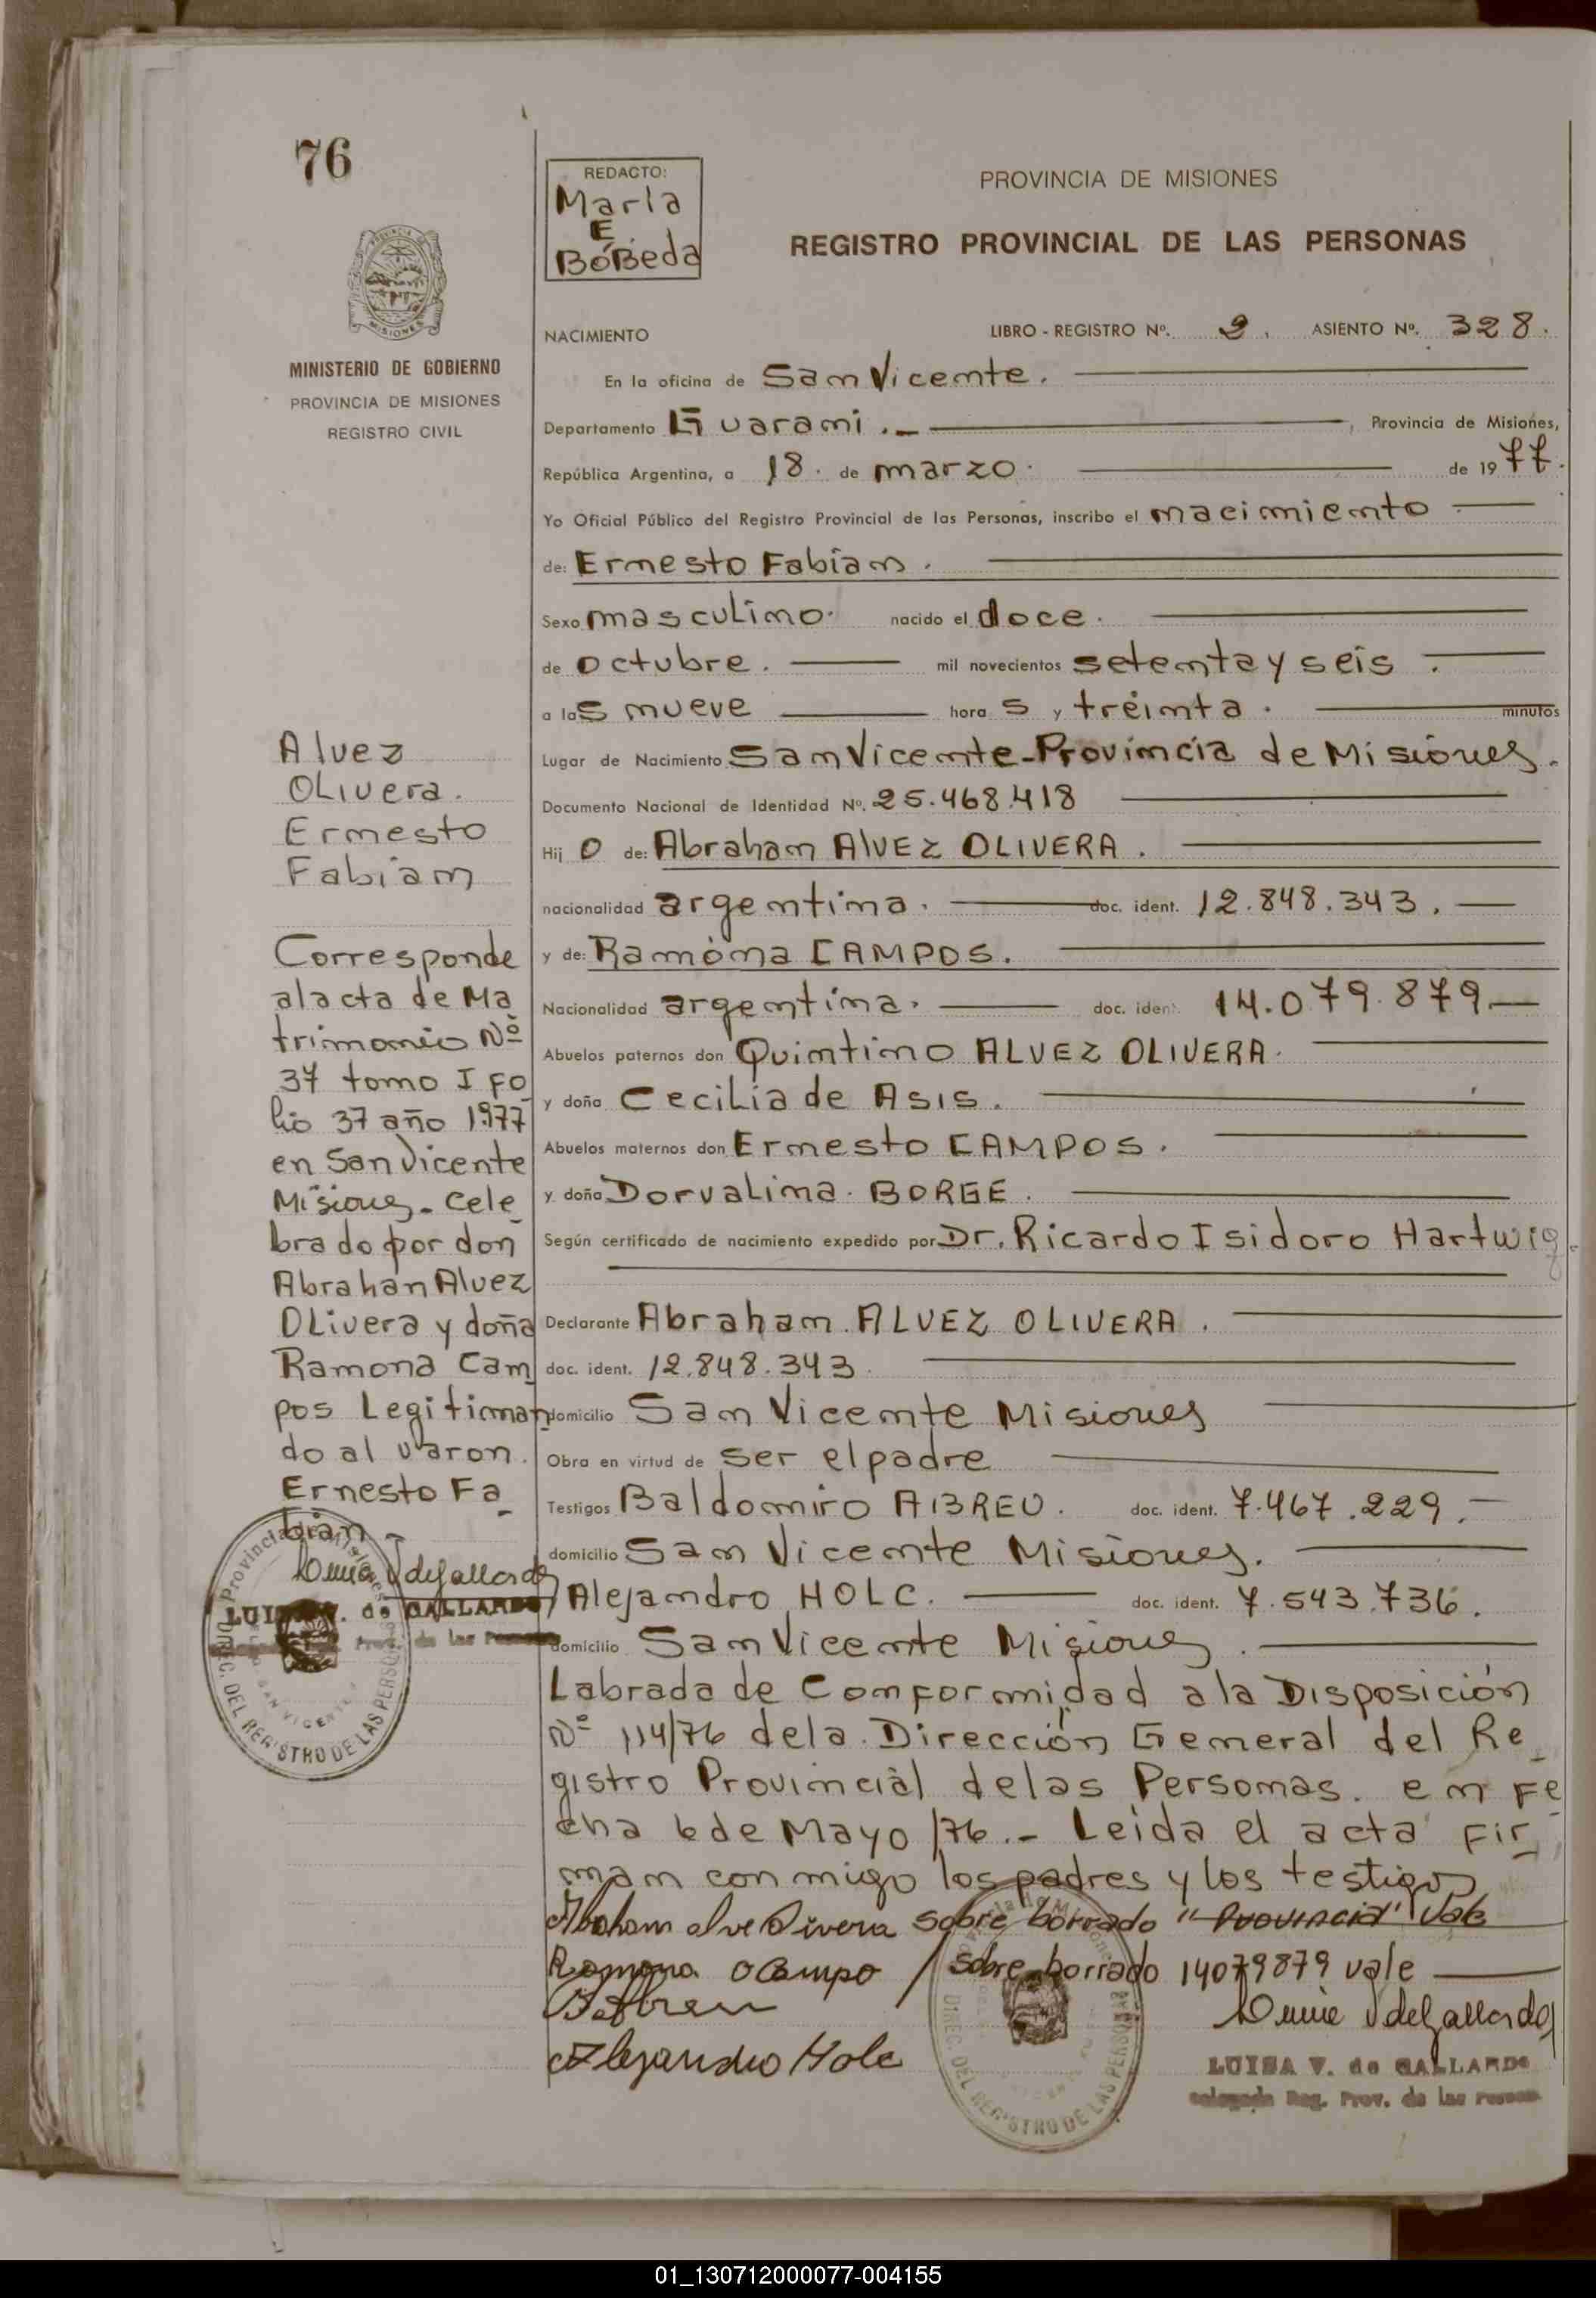 76
REDACTO:
Marla
E.
BóBeda
PROVINCIA DE MISIONES
REGISTRO PROVINCIAL DE LAS PERSONAS
MINISTERIO DE GOBIERNO
PROVINCIA DE MISIONES
REGISTRO CIVIL
NACIMIENTO LIBRO - REGISTRO Nº. 2. ASIENTO Nº. 328.
En la oficina de San Vicente.
Departamento Guaraní. Provincia de Misiones,
República Argentina, a 18. de marzo. de 1977.
Yo Oficial Público del Registro Provincial de las Personas, inscribo el nacimiento
de: Ernesto Fabian.
Sexo masculino. nacido el doce.
de octubre. mil novecientos setenta y seis.
a las nueve horas y treinta. minutos
Lugar de Nacimiento San Vicente-Provincia de Misiones.
Documento Nacional de Identidad Nº. 25.468.418
Hijo de: Abraham AlVEZ OLIVERA.
nacionalidad argentina. doc. ident. 12.848.343.
y de: Ramona CAMPOS.
Nacionalidad argentina. doc. ident. 14.079.879.
Abuelos paternos don Quintino ALVEZ OLIVERA.
y doña Cecilia de Asis.
Abuelos maternos don Ernesto CAMPOS.
y doña Dorvalina. BORGE.
Según certificado de nacimiento expedido por Dr. Ricardo Isidoro Hartwig.
Declarante Abraham. ALVEZ OLIVERA.
doc. ident. 12.848.343.
domicilio San Vicente Misiones
Obra en virtud de ser el padre
Testigos Baldomiro ABREU. doc. ident. 7.467.229.
domicilio San Vicente Misiones.
Alejandro HOLC. doc. ident. 7.543.736.
domicilio San Vicente Misiones.
Labrada de Conformidad a la Disposición
Nº 114/76 de la Dirección General del Re_
gistro Provincial de las Personas. en Fe_
cha 6 de Mayo/76.- Leida el acta Fir_
man conmigo los padres y los testigos
Abraham alve Olivera sobre borrado "Provincia" Vale
Ramona o Campo / sobre borrado 14079879 vale
BAbreu
Alejandro Holc
LUISA V. de GALLARDO
Delegada Reg. Prov. de las Person
Alvez
Olivera.
Ernesto
Fabian
Corresponde
al acta de Ma_
trimonio Nº
37 tomo I Fo_
lio 37 año 1977
en San Vicente
Misiones. Cele_
brado por don
Abrahan Alvez
Olivera y doña
Ramona Cam_
pos Legitiman_
do al varon.
Ernesto Fa_
bian
LUISA V. de GALLARDO
Prov. de las Personas
DIREC. DEL REGISTRO DE LAS PERSONAS
SAN VICENTE
DIREC. DEL REGISTRO DE LAS PERSONAS
01_130712000077-004155